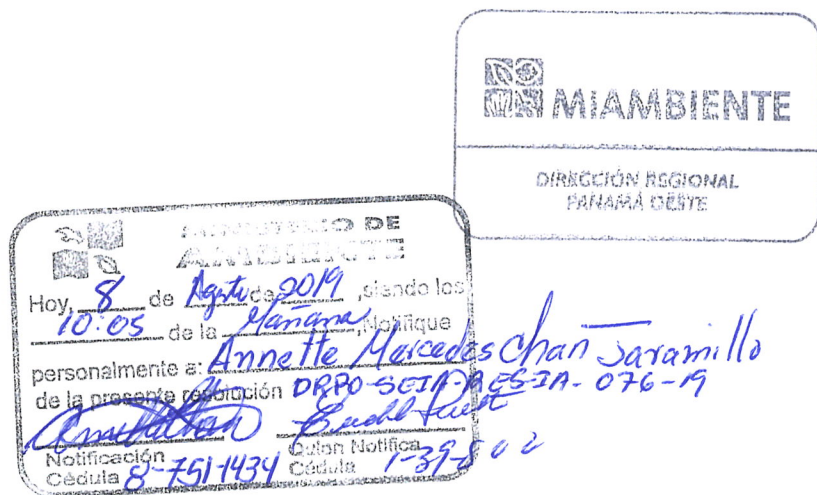 MiAMBIENTE
DIRECCIÓN REGIONAL
PANAMÁ OESTE
MINISTERIO DE
AMBIENTE
Hoy, 8 de Agosto de 2019, siendo las
10:05 de la Mañana, Notifique
personalmente a: Annette Mercedes Chan Jaramillo
de la presente resolución DRPO-SEIA-RES-IA-076-19
Notificación Quien Notifica
Cédula 8-751-1434 Cédula 1-39-802